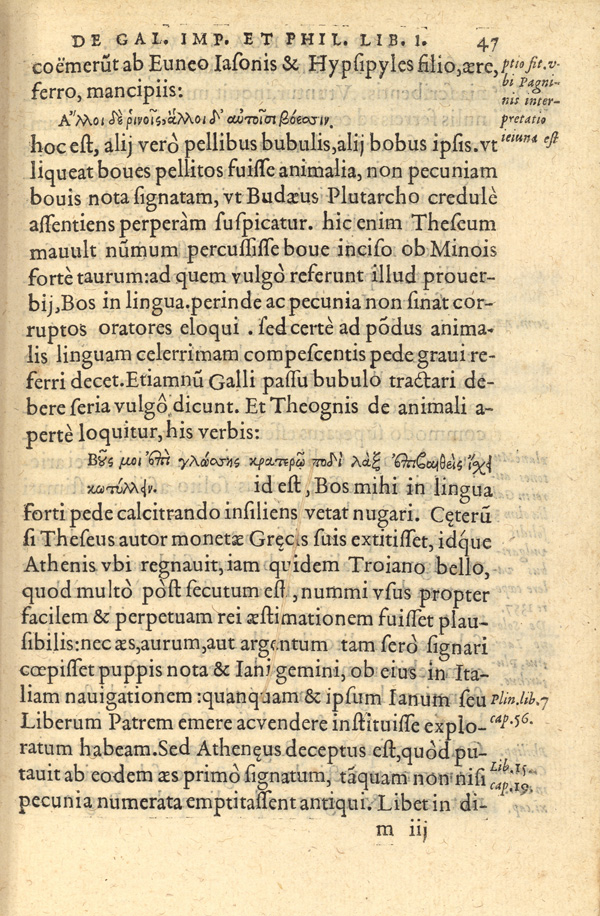 DE GAL. IMP. ET PHIL. LIB. I. 47
coëmerũt ab Euneo Iasonis & Hypsipyles filio, ære,
ferro, mancipiis:
Α῎λλοι δὲ ῥινοῖς, ἄλλοι δ᾽ αὐτοῖσι βόεσσιν.
hoc est, alij verò pellibus bubulis, alij bobus ipsis. vt
liqueat boues pellitos fuisse animalia, non pecuniam
bouis nota signatam, vt Budæus Plutarcho credulè
assentiens perperàm suspicatur. hic enim Theseum
mauult nũmum percussisse boue inciso ob Minois
fortè taurum: ad quem vulgò referunt illud prouer-
bij, Bos in lingua. perinde ac pecunia non sinat cor-
ruptos oratores eloqui . sed certè ad põdus anima-
lis linguam celerrimam compescentis pede graui re-
ferri decet. Etiamnũ Galli passu bubulo tractari de-
bere seria vulgô dicunt. Et Theognis de animali a-
pertè loquitur, his verbis:
Βοῦς μοι ἐπὶ γλώσσης κρατερῷ ποδὶ λὰξ ἐπιβαίνων ἴσχει
κωτίλλειν. id est, Bos mihi in lingua
forti pede calcitrando insiliens vetat nugari. Cęterũ
si Theseus autor monetæ Gręcis suis extitisset, idq́ue
Athenis vbi regnauit, iam quidem Troiano bello,
quod multò pòst secutum est, nummi vsus propter
facilem & perpetuam rei æstimationem fuisset plau-
sibilis: nec æs, aurum, aut argentum tam serò signari
cœpisset puppis nota & Iani gemini, ob eius in Ita-
liam nauigationem : quanquam & ipsum Ianum seu
Liberum Patrem emere ac vendere instituisse explo-
ratum habeam. Sed Athenęus deceptus est, quòd pu-
tauit ab eodem æs primò signatum, tãquam non nisi
pecunia numerata emptitassent antiqui. Libet in di-
m iij
ptio fit. v-
bi Pagni-
nis inter-
pretatio
ieiuna est
Plin. lib. 7
cap. 56.
Lib. 15.
cap. 19.